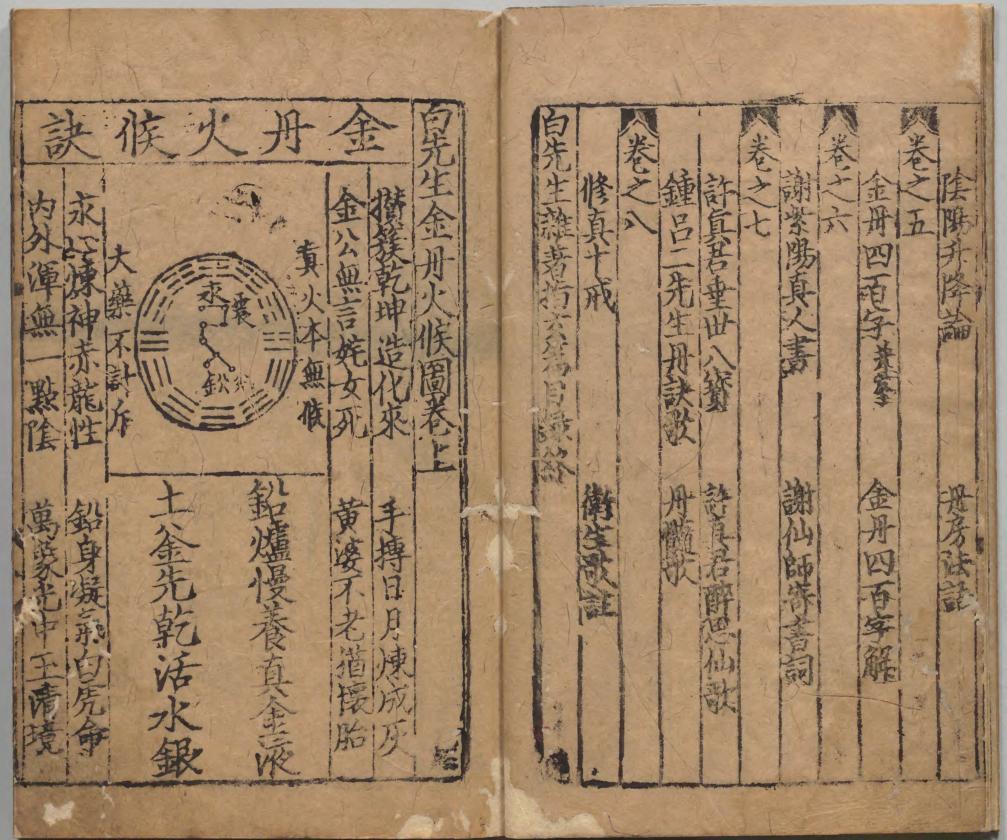 陰陽升降論　丹房法語
卷之五
金丹四百字　金丹四百字解
卷之六
謝紫陽真人書　謝仙師寄書詞
卷之七
許真君垂世八寶　許真君醉思仙歌
鍾呂二先生丹訣歌　丹髓歌
卷之八
修真十戒　衛生歌註
白先生雜著指玄篇目錄終
白先生金丹火候圖卷上
金丹火候訣
攅簇乾坤造化來　手摶日月煉成灰
金公無言姹女死　黃婆不老猶懷胎
真火本無候
大藥不計斤
鉛爐慢養真金液
土釜先乾活水銀
汞心煉神赤龍性　鉛身凝氣白虎命
内外渾無一點陰　萬象光中玉清境